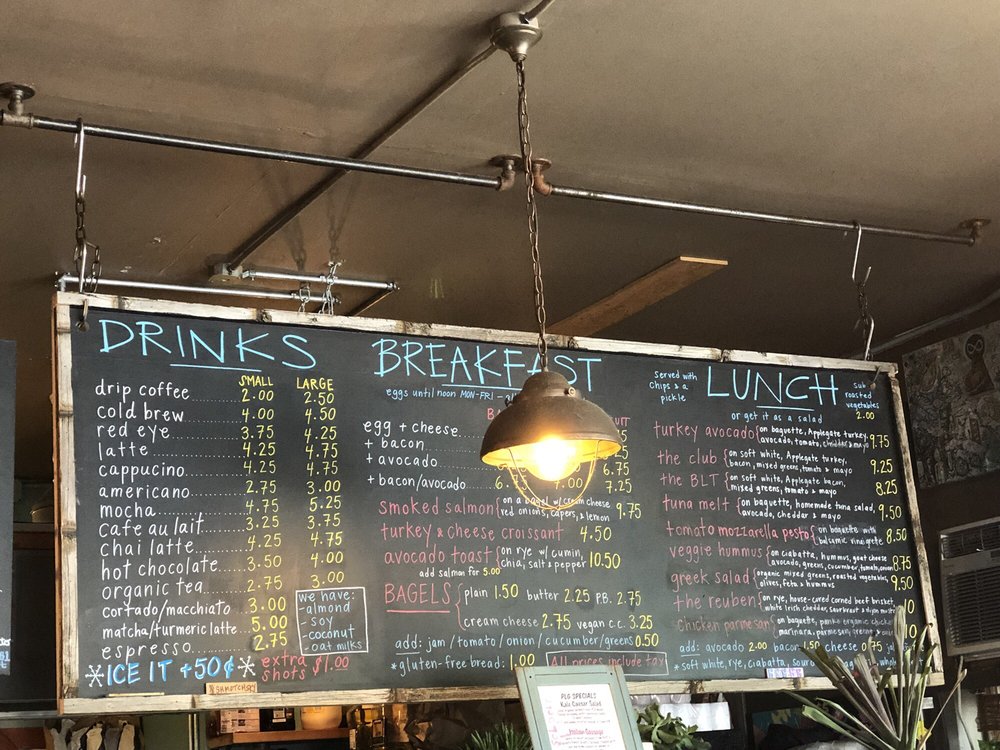 DRINKS
SMALL LARGE
drip coffee 2.00 2.50
cold brew 4.00 4.50
red eye 3.75 4.25
latte 4.25 4.75
cappucino 4.25 4.75
americano 2.75 3.00
mocha 4.75 5.25
cafe au lait 3.25 3.75
chai latte 4.25 4.75
hot chocolate 3.50 4.00
organic tea 2.75 3.00
cortado/macchiato 3.00
matcha/turmeric latte 5.00
espresso 2.75
we have:
-almond
- soy
-coconut
-oat milks
*ICE IT +50¢*
extra shots $1.00
BREAKFAST
eggs until noon MON-FRI -
egg + cheese
+ bacon
+ avocado 6.75
+ bacon/avocado 7.25
smoked salmon on a bagel w/ cream cheese red onions, capers, & lemon 9.75
turkey & cheese croissant 4.50
avocado toast on rye w/ cumin, chia, salt & pepper 10.50
add salmon for 5.00
BAGELS plain 1.50 butter 2.25 P.B. 2.75
cream cheese 2.75 vegan c.c. 3.25
add: jam/tomato/onion/cucumber/greens 0.50
*gluten-free bread: 1.00
All prices include tax
Served with chips & a pickle
LUNCH
Sub roasted vegetables 2.00
or get it as a salad
turkey avocado on baguette, Applegate turkey, avocado, tomato, cheddar & mayo 9.75
the club on soft white, Applegate turkey, bacon, mixed greens, tomato & mayo 9.25
the BLT on soft white, Applegate bacon, mixed greens, tomato & mayo 8.25
tuna melt on baguette, homemade tuna salad, avocado, cheddar & mayo 9.50
tomato mozzarella pesto on baguette with balsamic vinegrete 8.50
veggie hummus on ciabatta, hummus, goat cheese avocado, greens, cucumber, tomato, onion 8.75
greek salad organic mixed greens, roasted vegetables, olives, feta & hummus 9.50
the reuben on rye, house-cured corned beef brisket white Irish cheddar, saurkraut &
chicken parmesan on baguette, panko organic chicken marinara, parmesan, greens
add: avocado 2.00 bacon cheese 0.75
*soft white, rye, ciabatta,
PLG SPECIALS
Kale Caesar Salad